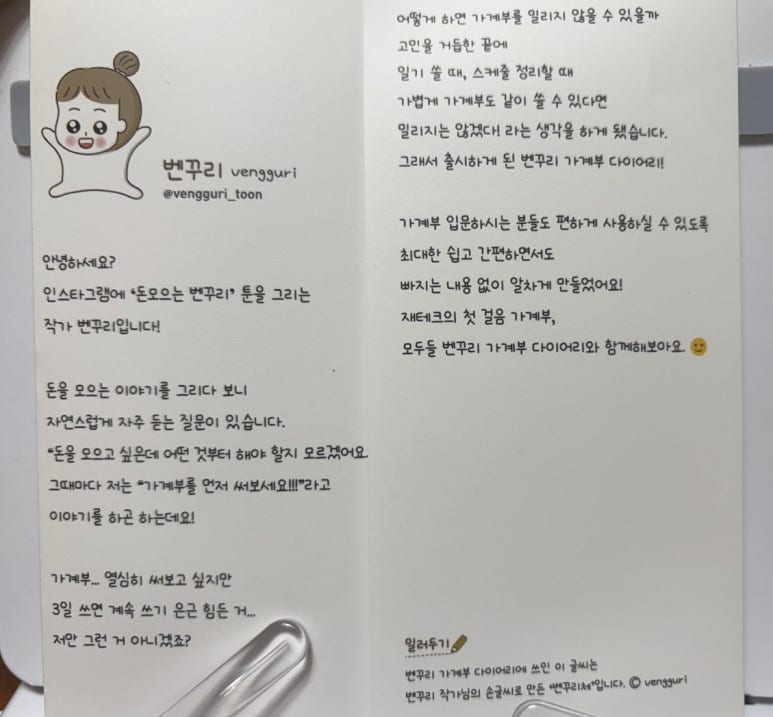 벤꾸리 vengguri
@vengguri_toon
안녕하세요?
인스타그램에 '돈모으는 벤꾸리' 툰을 그리는
작가 벤꾸리입니다!
돈을 모으는 이야기를 그리다 보니
자연스럽게 자주 듣는 질문이 있습니다.
"돈을 모으고 싶은데 어떤 것부터 해야 할지 모르겠어요.
그때마다 저는 "가계부를 먼저 써보세요!!!"라고
이야기를 하곤 하는데요!
가계부... 열심히 써보고 싶지만
3일 쓰면 계속 쓰기 은근 힘든 거...
저만 그런 거 아니겠죠?
어떻게 하면 가계부를 밀리지 않을 수 있을까
고민을 거듭한 끝에
일기 쓸 때, 스케줄 정리할 때
가볍게 가계부도 같이 쓸 수 있다면
밀리지는 않겠다! 라는 생각을 하게 됐습니다.
그래서 출시하게 된 벤꾸리 가계부 다이어리!
가계부 입문하시는 분들도 편하게 사용하실 수 있도록
최대한 쉽고 간편하면서도
빠지는 내용 없이 알차게 만들었어요!
재테크의 첫 걸음 가계부,
모두들 벤꾸리 가계부 다이어리와 함께해보아요.
일러두기
벤꾸리 가계부 다이어리에 쓰인 이 글씨는
벤꾸리 작가님의 손글씨로 만든 "벤꾸리체"입니다. © vengguri